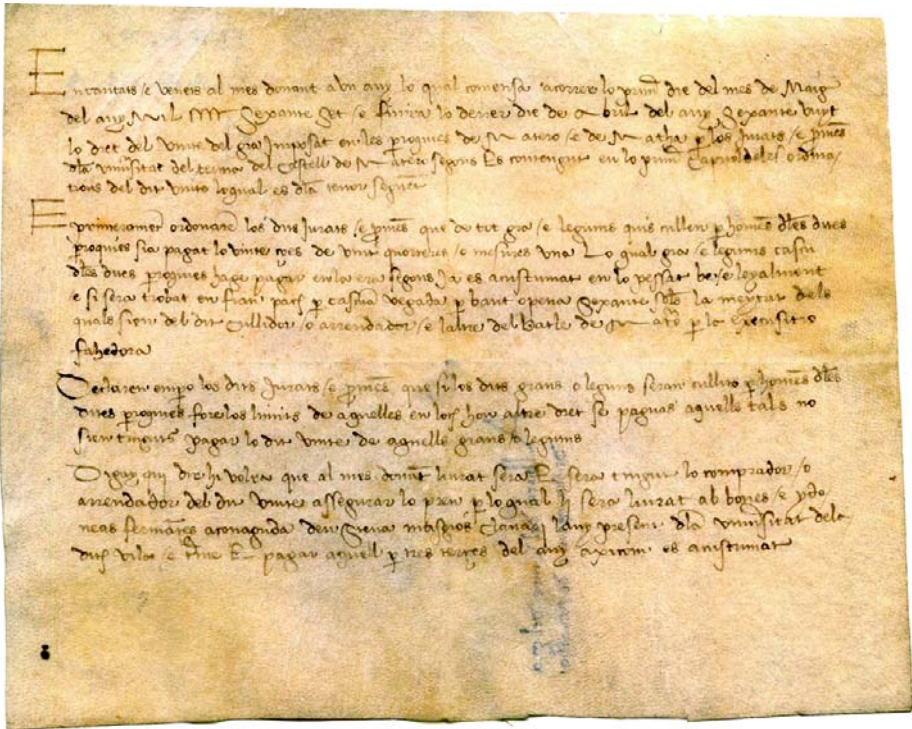 Encantats e veneis al mes donant a un any lo qual comensa acorrer lo prim die del mes de Maig
del any Mil Sexante Set / e finira lo derrer die de Abril del any Sexante vuyt
lo dret del vinte del gra Imposat en les proquies de Matero / e de Matha p los Jurats / e promēs
dla vniūsitat del terme del Castell de Matero segons Es contengut en lo prim Capitol deles ordina
tions del dit vinte loqual es dla tenor seguēt
E primeramēt ordonarē los dits Jurats / e promēs que de tot gra / e legums quis cullen p homēs dles dues
proquies sia pagat lo vinte ço es de vint quorteres / o mesures vna Lo qual gra / e legums cascu
dles dues proquies hage pagar en la era segons Ja es acustumat en lo passat be / e leyalment
e si sera trobat en frau pach p casc̄ua vegada p bant o pena Sexante sols la meytat dels
quals sien del dit Cullidor / o arrendador / e laltre del Batle de Mat̄o p la Execusitio
fahedora
Declaren empo los dits Jurats / e promēs que si los dits grans o legums seran cullits p homēs dles
dites proquies fore los limits de aquelles en loch hon altre dret se paguas aquells tals no
sien tinguts pagar lo dit vinte de aquells grans o legums
Digay, qui dir hi volra que al mes donāt liurat sera E sera tingut lo comprador / o
arrendador del dit vinte assegurar lo preu p loqual li sera liurat ab bones / e ydo
neas fermanses a conaguda den Clavari lany present dla vniūsitat dela
dita vila / e pagar aquell p tres terçes del any axicom es acustumat